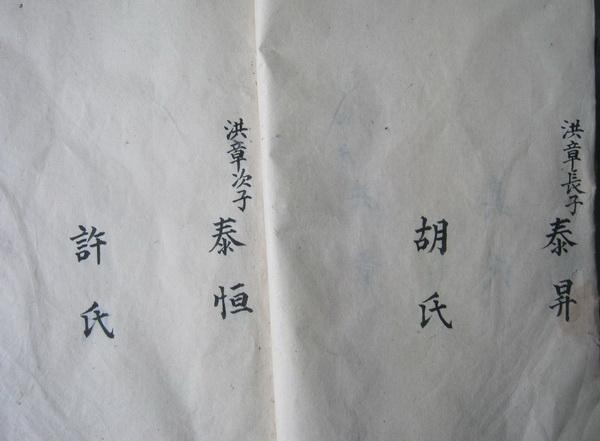 洪章長子
泰昇
胡氏
洪章次子
泰恒
許氏